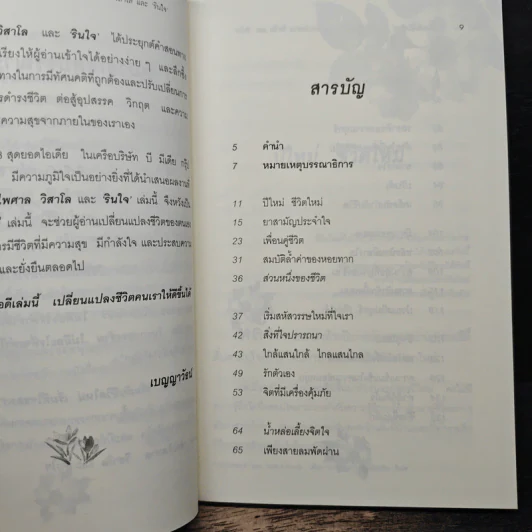 วิสาโล และ รินใจ' ได้ประยุกต์คำสอนทาง
เรียงให้ผู้อ่านเข้าใจได้อย่างง่าย ๆ และลึกซึ้ง
ทางในการมีทัศนคติที่ถูกต้องและปรับเปลี่ยนการ
รดำรงชีวิต ต่อสู้อุปสรรค วิกฤต และความ
ความสุขจากภายในของเราเอง
สุดยอดไอเดีย ในเครือบริษัท บี มีเดีย กรุ๊ป
มีความภูมิใจเป็นอย่างยิ่งที่ได้นำเสนอผลงาน
ไพศาล วิสาโล และ รินใจ' เล่มนี้ จึงหวังเป็น
เล่มนี้ จะช่วยผู้อ่านเปลี่ยนแปลงชีวิตของตนเอง
การมีชีวิตที่มีความสุข มีกำลังใจ และประสบความ
และยั่งยืนตลอดไป
อดีเล่มนี้ เปลี่ยนแปลงชีวิตคนเราให้ดีขึ้นได้
เบญญาวัธน์
9
สารบัญ
5 คำนำ
7 หมายเหตุบรรณาธิการ
11 ปีใหม่ ชีวิตใหม่
15 ยาสามัญประจำใจ
23 เพื่อนคู่ชีวิต
31 สมบัติล้ำค่าของหอยทาก
36 ส่วนหนึ่งของชีวิต
37 เริ่มสหัสวรรษใหม่ที่ใจเรา
42 สิ่งที่ใจปรารถนา
43 ใกล้แสนใกล้ ไกลแสนไกล
49 รักตัวเอง
53 จิตที่มีเครื่องคุ้มภัย
64 น้ำหล่อเลี้ยงจิตใจ
65 เพียงสายลมพัดผ่าน